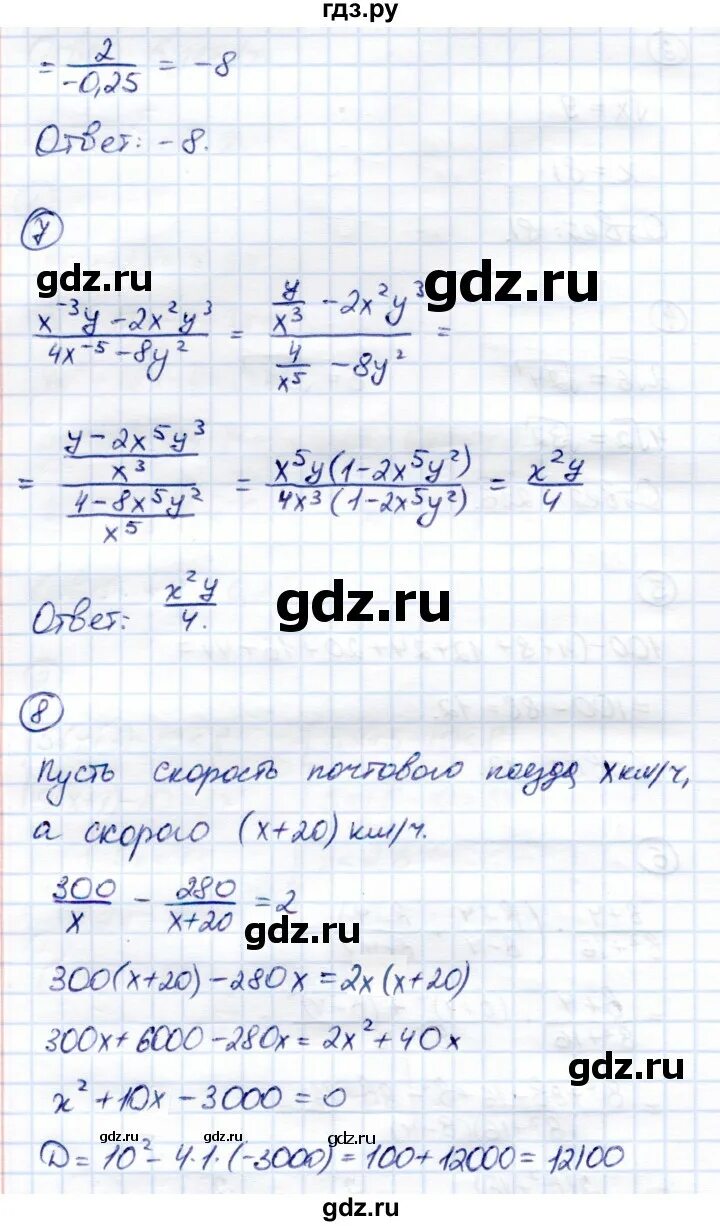 гдз.ру
= 2/-0,25 = -8
Ответ: -8.
7
gdz.ru
gdz.ru
(x⁻³y - 2x²y³)/(4x⁻⁵ - 8y²) = (y/x³ - 2x²y³)/(4/x⁵ - 8y²) =
= ((y - 2x⁵y³)/x³)/((4 - 8x⁵y²)/x⁵) = x⁵y(1 - 2x⁵y²)/4x³(1 - 2x⁵y²) = x²y/4
Ответ: x²y/4.
gdz.ru
8
Пусть скорость почтового поезда x км/ч,
а скорого (x+20) км/ч.
300/x - 280/(x+20) = 2
gdz.ru
300(x+20) - 280x = 2x(x+20)
300x + 6000 - 280x = 2x² + 40x
gdz.ru
x² + 10x - 3000 = 0
gdz.ru
gdz.ru
gdz.ru
D = 10² - 4·1·(-3000) = 100 + 12000 = 12100
gdz.ru